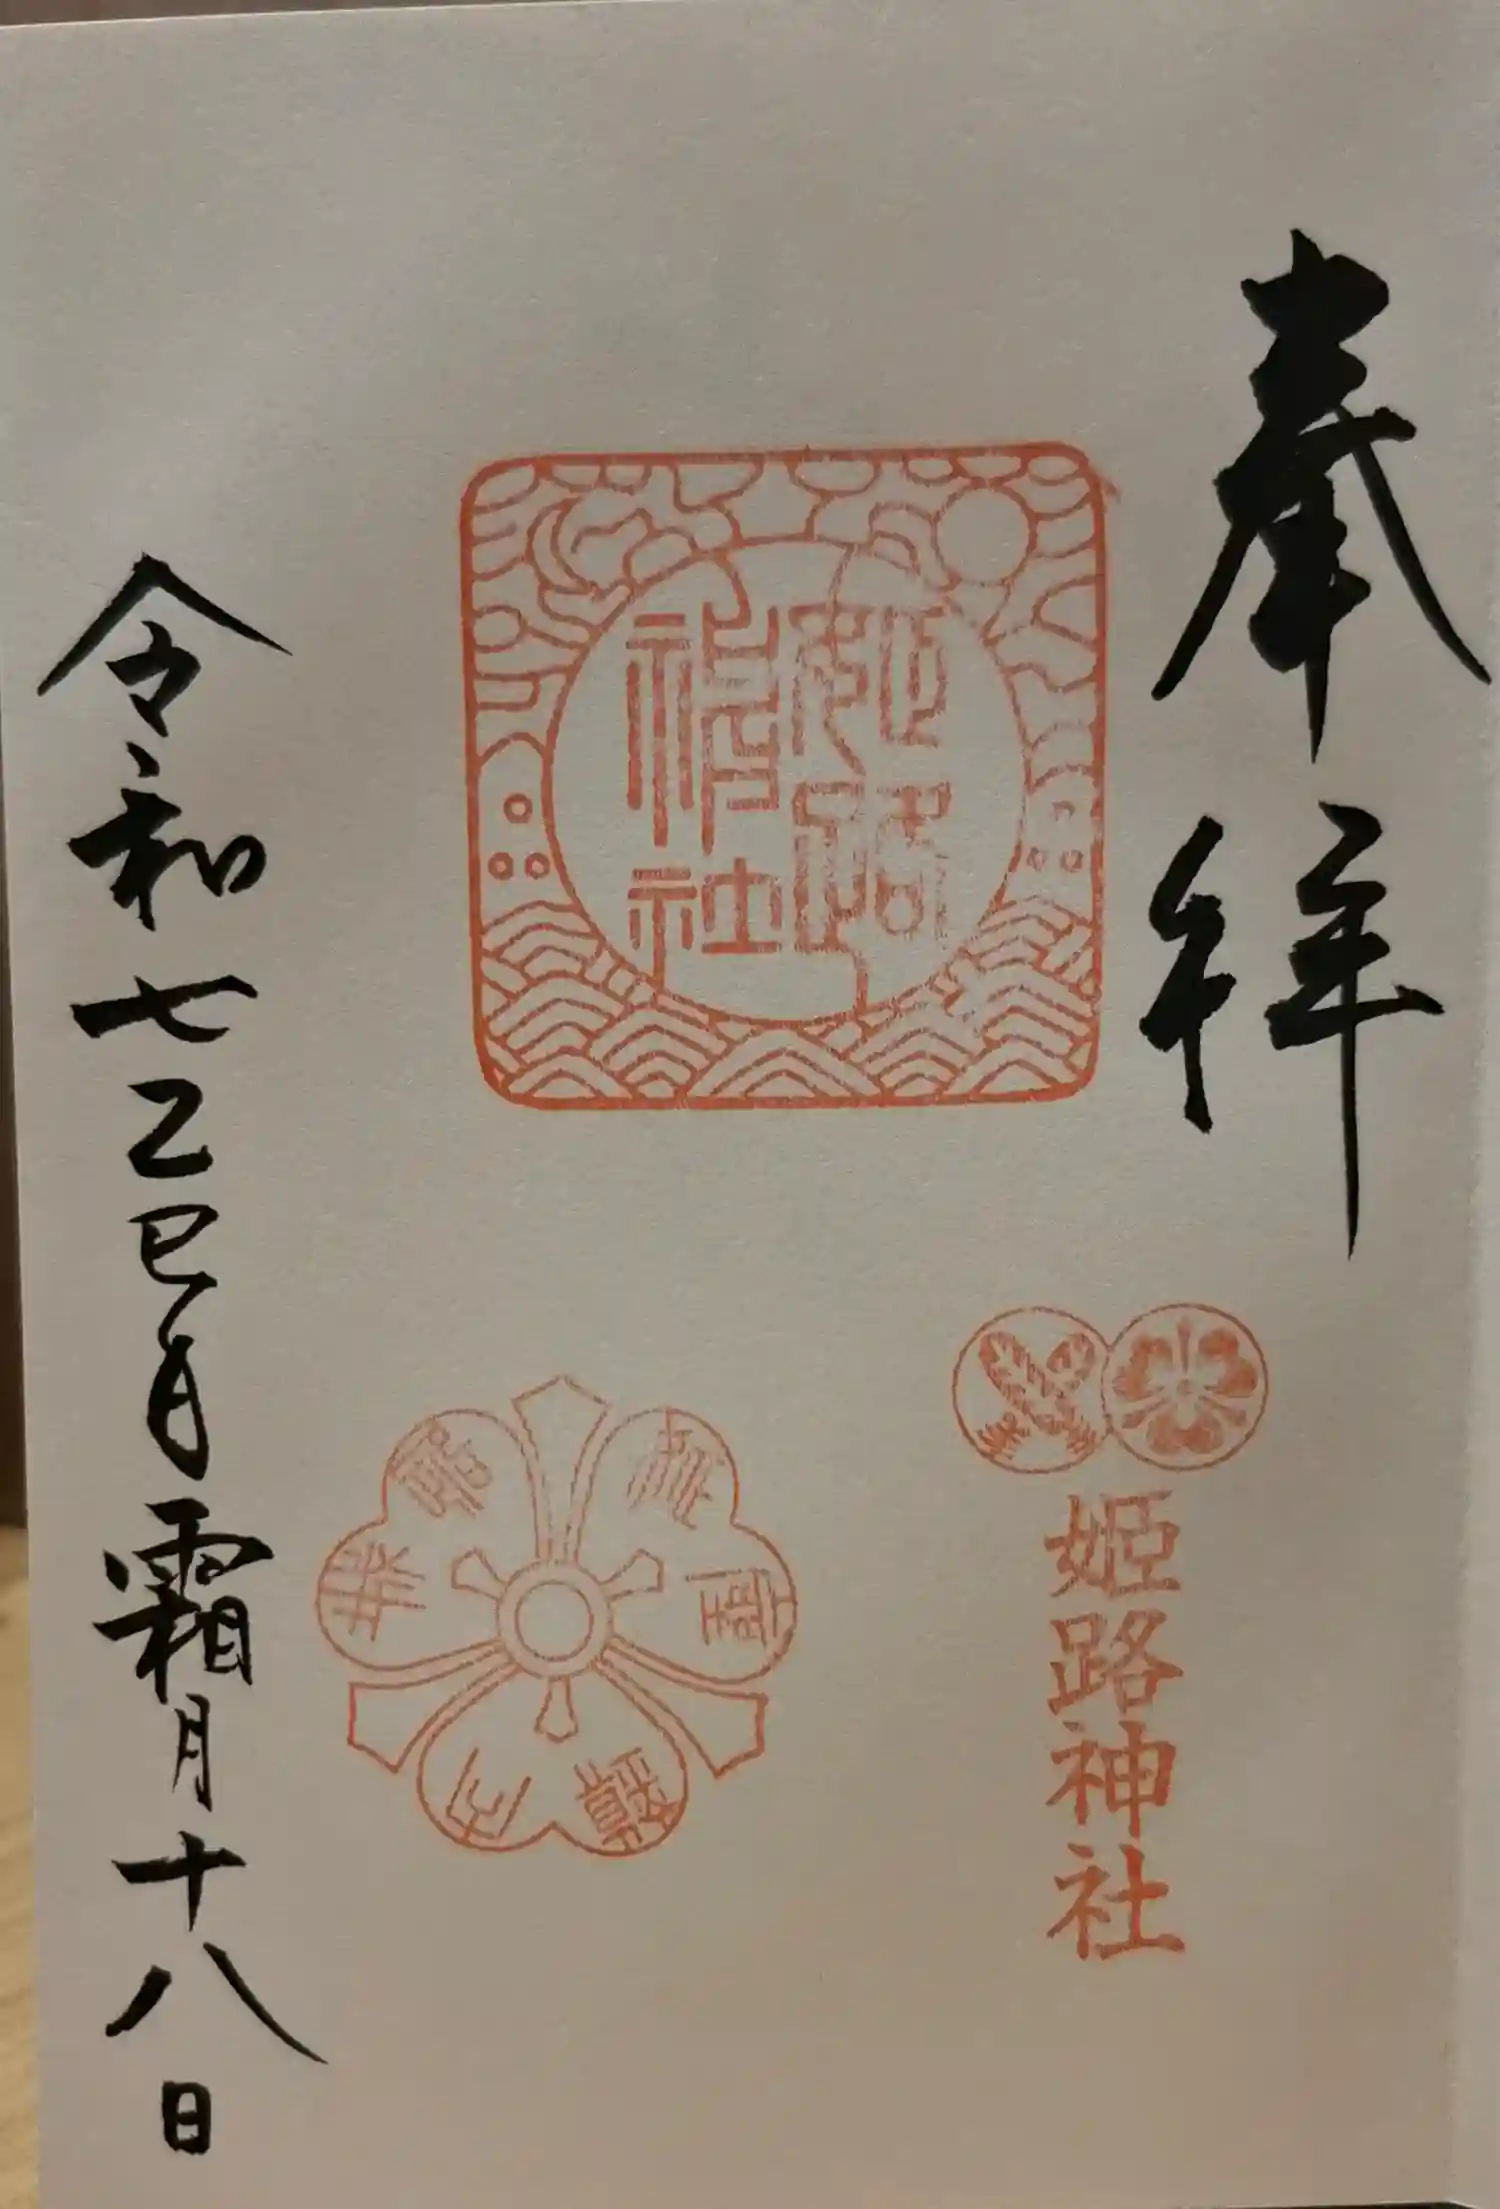 奉拝
姫路神社
姫路
神社
令和七乙巳年霜月十八日